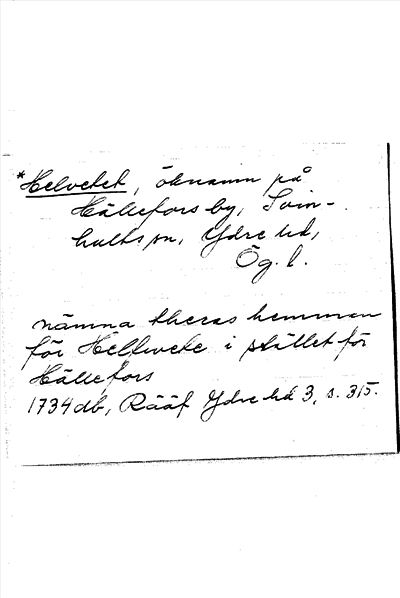 *Helvetet, öknamn på
Hällefors by, Svin-
hults sn, Ydre hd,
Ög. l.
nämna theras hemman
för Hellwete i stället för
Hällefors
1734 db, Rääf Ydre hd 3, s. 315.